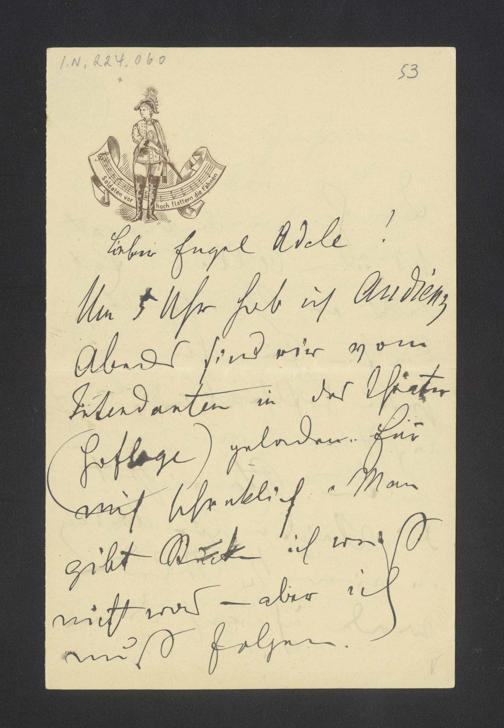 I.N. 224.060
53
Soldaten vor hoch flattern die Fahnen
Lieber Engel Adele!
Um 5 Uhr hab ich Audienz
Abends sind wir vom
Intendanten in das Theater
(Hofloge) geladen. für
mich schrecklich. Man
gibt ich weiß
nicht was – aber ich
muß folgen.